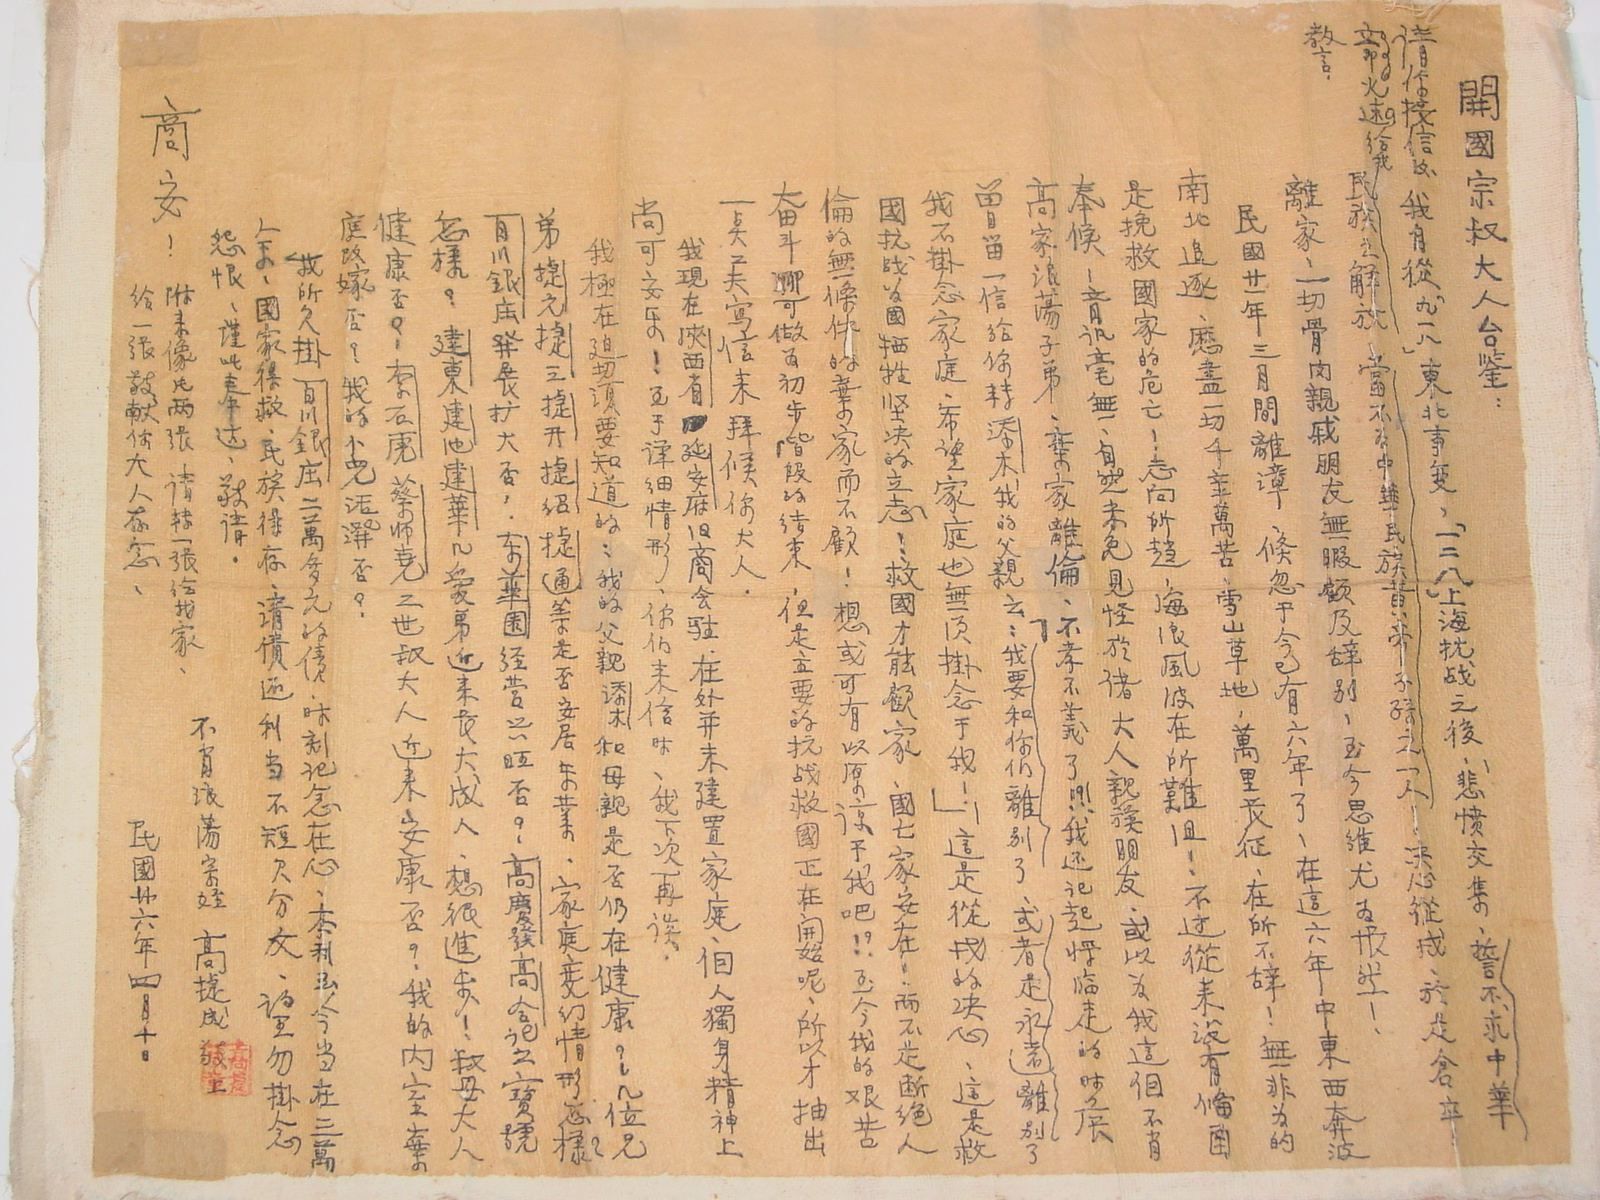 開國宗叔大人台鑒：
請你接信後
章即火速給我
教言。
我自從「九一八」東北事变，「一二八」上海抗战之後，悲憤交集，誓不求中華
民族之解放，當不為中華民族黃帝子孫之一人！决心從戎，於是倉卒
離家，一切骨肉親戚朋友無暇顧及辞别，至今思维尤為恨然！
民國廿一年三月間離漳，倏忽于今已有六年了，在這六年中東西奔波
南北追逐，歷盡一切千辛萬苦，雪山草地，萬里長征，在所不辞！無非為的
是挽救國家的危亡！志向所趋，海浪風波在所難阻！不过從来沒有偹函
奉候！音讯毫無，自然未免見怪於诸大人親族朋友，或以為我這個不肖
高家浪蕩子弟，棄家離倫，不孝不義了！！！我还记起悍临走的时候
曾留一信给你转添木我的父親云：「我要和你们離别了，或者是永遠離别了
我不掛念家庭，希望家庭也無须掛念于我！」這是從戎的决心，這是救
國抗战为國牺牲坚决的立志！救國才能顧家，國亡家安在！而不是断绝人
倫的無條件的棄家而不顧！想或可有以原谅于我吧！？至今我的艰苦
奋斗聊可做为初步階段的结束，但是主要的抗战救國正在開始呢，所以才抽出
一点工夫寫信来拜候你大人。
我現在陝西省延安府旧商会駐，在外并未建置家庭，個人獨身精神上
尚可安乐！至于详细情形，你们来信时，我下次再谈。
我極在迫切须要知道的：我的父親添木和母親是否仍在健康？几位兄
弟捷元捷三捷升捷绍捷通等是否安居乐業，家庭变幻情形怎樣？
百川銀庄發展扩大否！东華園经营兴旺否？高慶發高会记之寶號
怎樣？建東建池建華几爱弟近来長大成人，想很進步！叔母大人
健康否？李石虎蔡师尧二世叔大人近来安康否？我的内室棄
庭改嫁否？我的小兒活潑否？
我所欠掛百川銀庄二萬多元的债，时刻记念在心，本利至今当在三萬
余，國家得救，民族得存，清償还利当不短欠分文，请勿掛念
怨恨，謹此奉达，敬请。
商安！
附来像片两张，请转一张给我家，
给一张敬献你大人存念、
不肖浪蕩宗姪 高捷成 敬上
民國廿六年四月十日